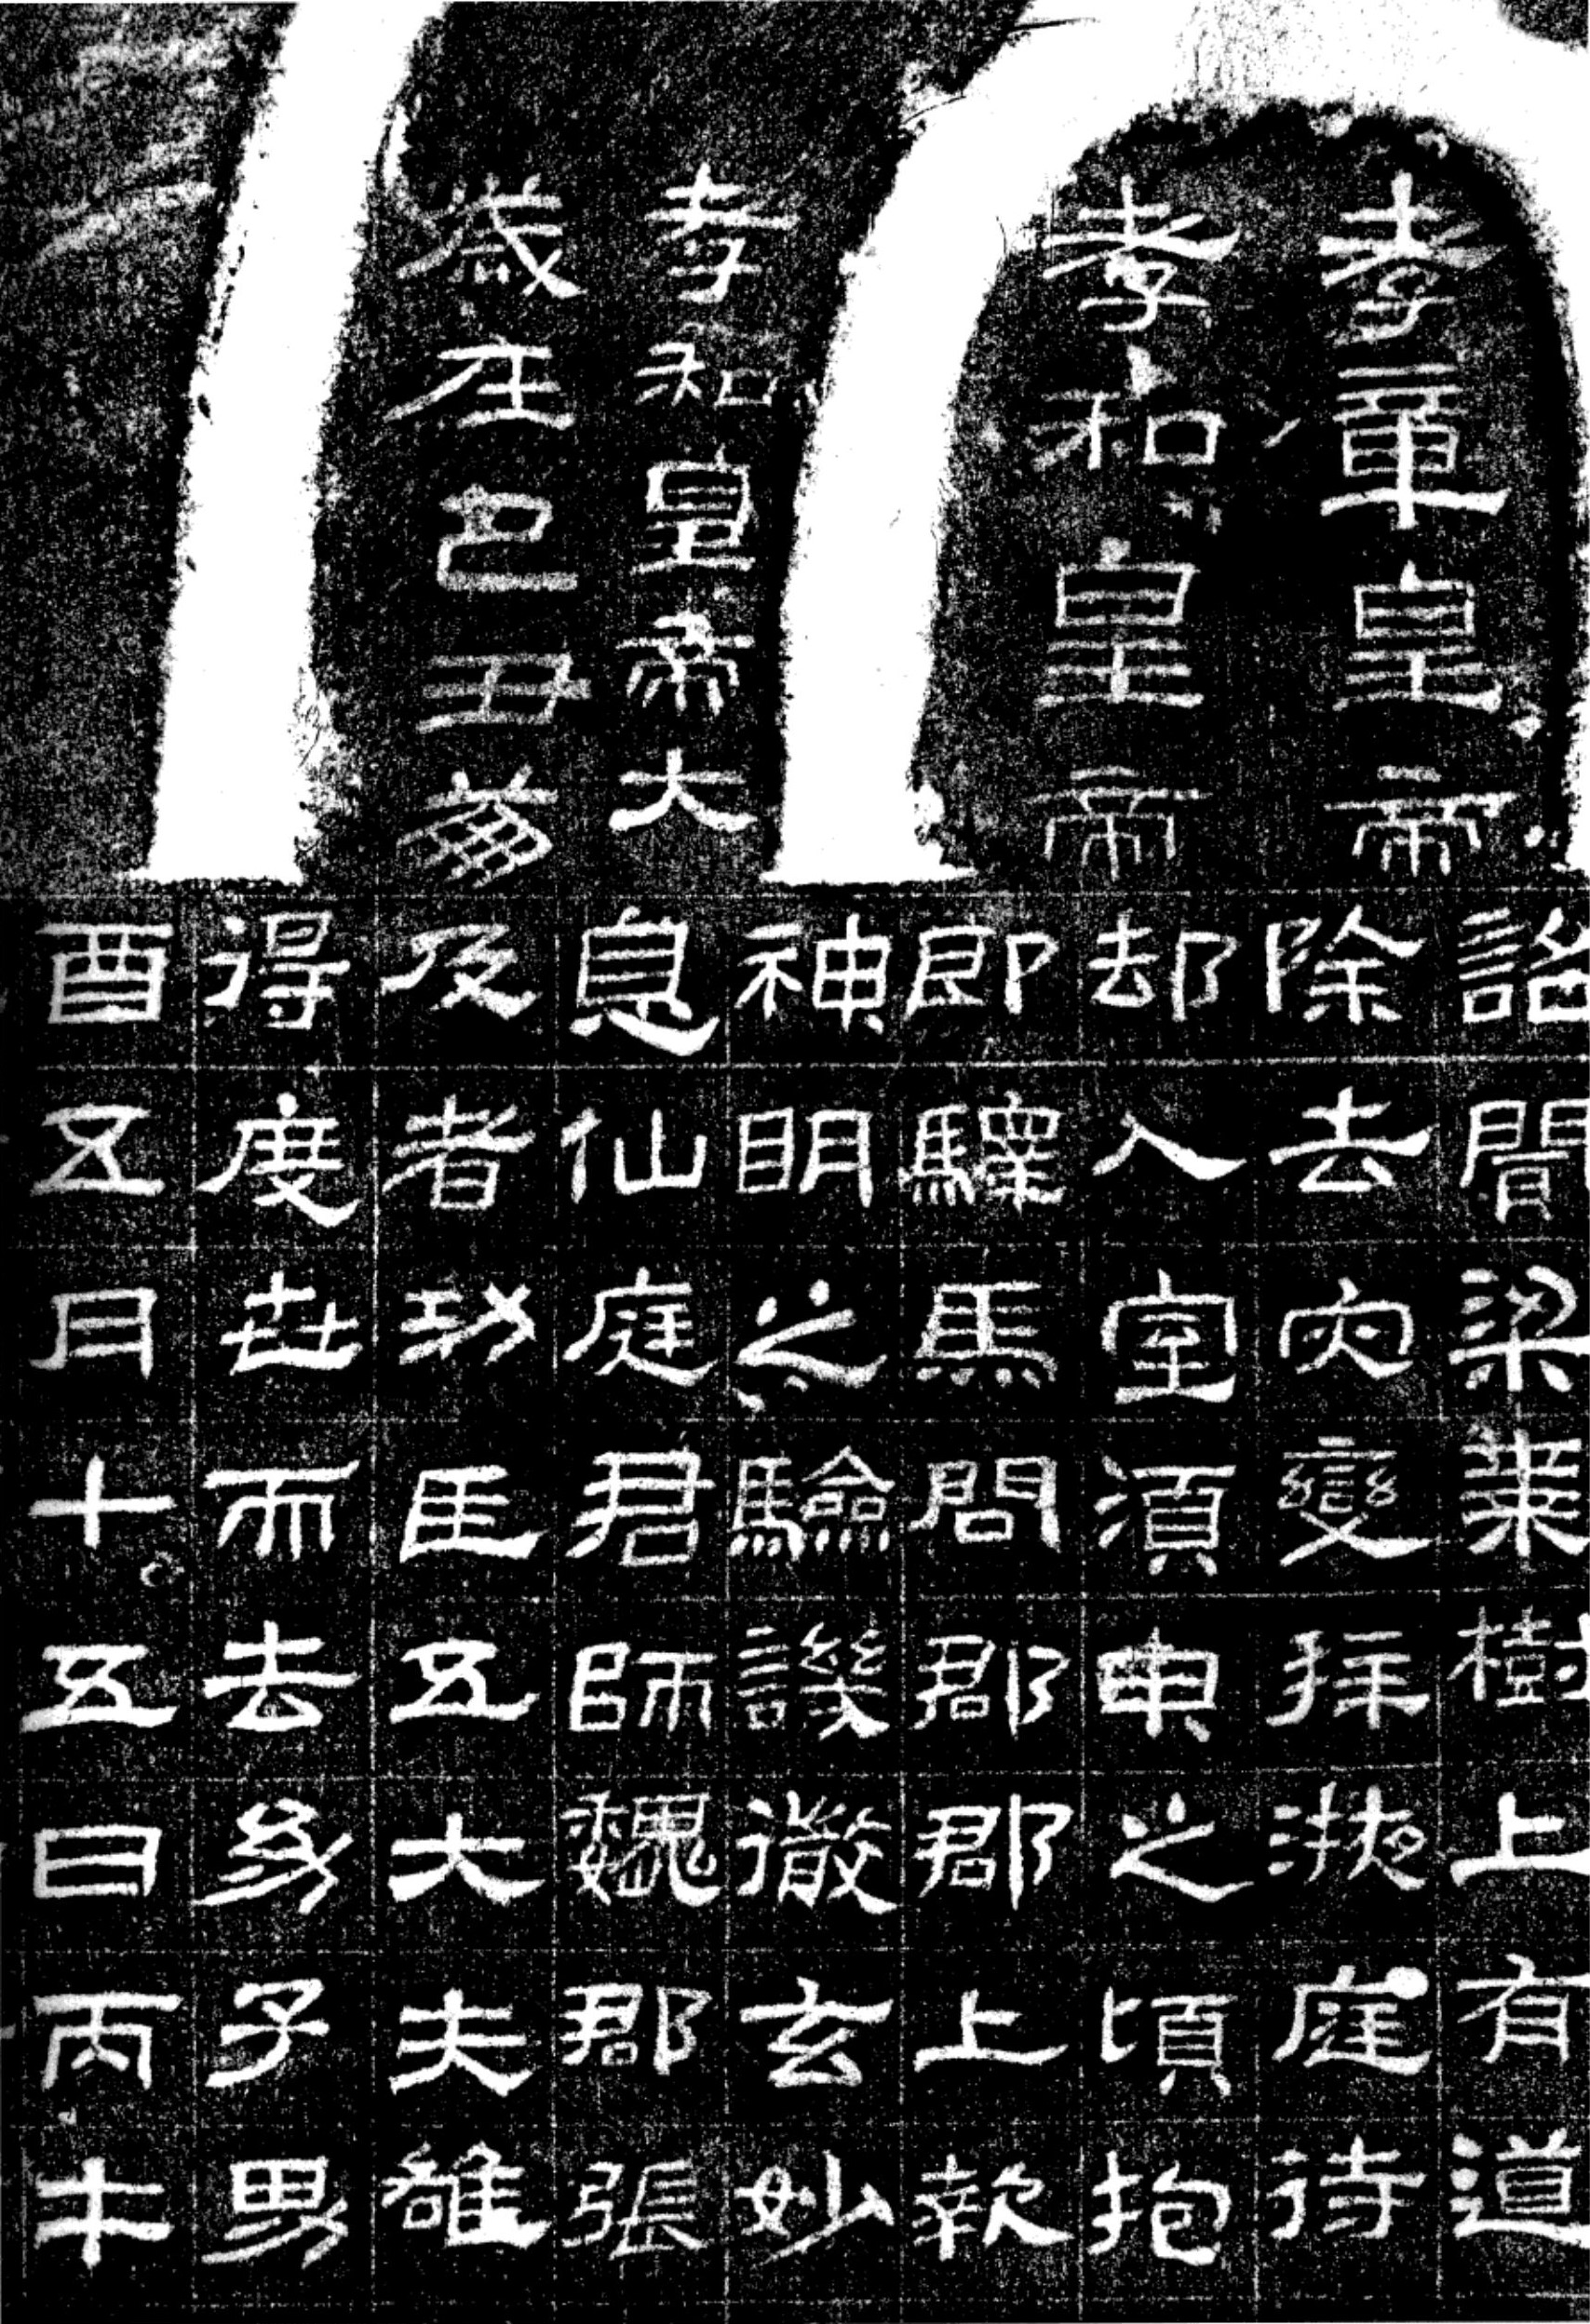 孝章皇帝
孝和皇帝
孝和皇帝大
歲在己丑崩
詔聞梁棗樹上有道
除去災變拜掖庭待
却入室須臾之頃抱
即驛馬問郡郡上報
神明之驗譏徹玄妙
息仙庭君師魏郡張
及者功臣五大夫雒
得度世而去幼子男
酉五月十五日丙午